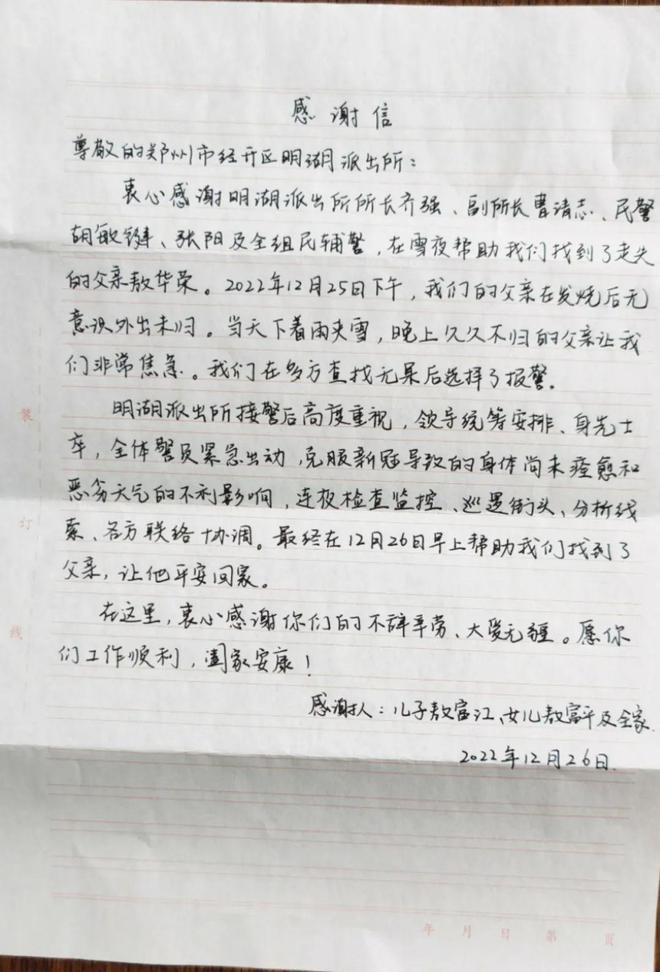 感谢信
尊敬的郑州市经开区明湖派出所：
衷心感谢明湖派出所所长齐强、副所长曹清志、民警
胡敏、张阳及全组民辅警，在雪夜帮助我们找到了走失
的父亲敖华荣。2022年12月25日下午，我们的父亲在发烧后无
意识外出未归。当天下着雨夹雪，晚上久久不归的父亲让我
们非常焦急。我们在多方查找无果后选择了报警。
明湖派出所接警后高度重视，领导统筹安排、身先士
卒，全体警员紧急出动，克服新冠导致的身体尚未痊愈和
恶劣天气的不利影响，连夜检查监控、巡逻街头、分析线
索、各方联络协调。最终在12月26日早上帮助我们找到了
父亲，让他平安回家。
在这里，衷心感谢你们的不辞辛劳、大爱无疆。愿你
们工作顺利，阖家安康！
感谢人：儿子敖富江、女儿敖富平及全家
2022年12月26日
装
订
线
年 月 日 第 页